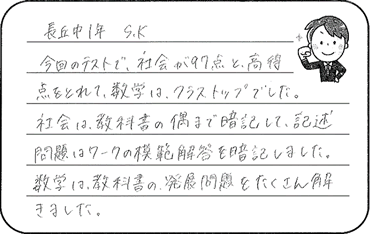 長丘中1年 S.K
今回のテストで、社会が97点と、高得
点をとれて、数学は、クラストップでした。
社会は、教科書の偶まで暗記して、記述
問題はワークの模範解答を暗記しました。
数学は、教科書の、発展問題をたくさん解
きました。